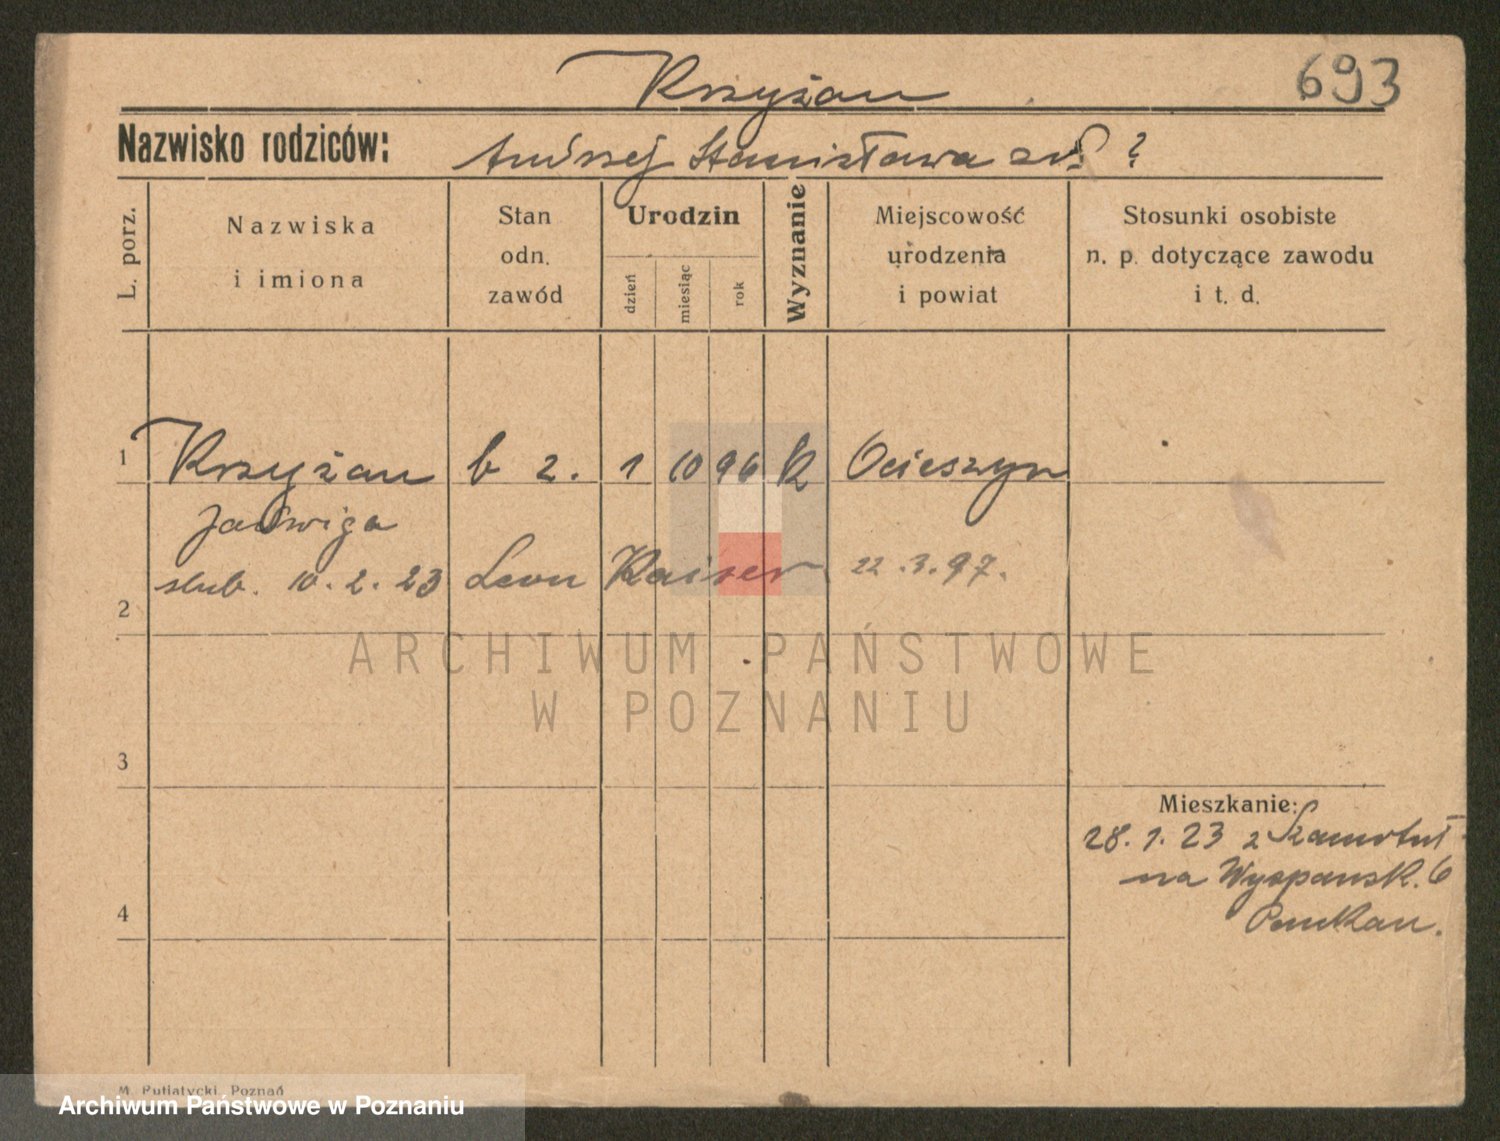 Krzyżan
693
Nazwisko rodziców:
Andrzej Stanisława zd ?
L. porz.
Nazwiska
i imiona
Stan
odn.
zawód
Urodzin
dzień
miesiąc
rok
Wyznanie
Miejscowość
urodzenia
i powiat
Stosunki osobiste
n. p. dotyczące zawodu
i t. d.
1 Krzyżan b z. 1 10 96 k Ocieszyn
Jadwiga
ślub. 10.2.23 Leon Kaiser 22.3.97.
2
ARCHIWUM PAŃSTWOWE
W POZNANIU
3
Mieszkanie:
28.1.23 z Szamotuł
na Wyspańsk. 6
4
M. Putiatycki, Poznań
Archiwum Państwowe w Poznaniu